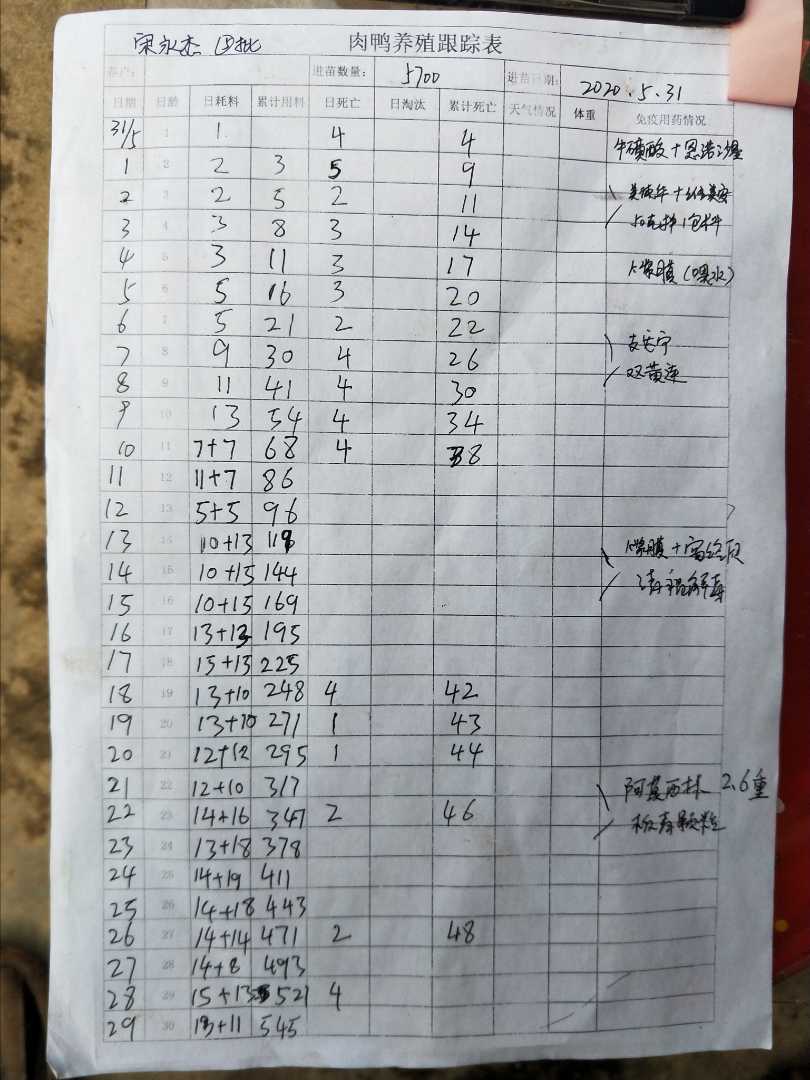 宋永杰 四批 肉鸭养殖跟踪表
养户: 进苗数量: 5700 进苗日期: 2020.5.31
日期 日龄 日耗料 累计用料 日死亡 日淘汰 累计死亡 天气情况 体重 免疫用药情况
31/5 1 1 4 4 牛磺酸+恩诺沙星
1 2 2 3 5 9
2 3 2 5 2 11
3 4 3 8 3 14
4 5 3 11 3 17 (喂水)
5 6 5 16 3 20
6 7 5 21 2 22
7 8 9 30 4 26 支安宁
8 9 11 41 4 30 双黄连
9 10 13 54 4 34
10 11 7+7 68 4 38
11 12 11+7 86
12 13 5+5 96
13 14 10+13 119
14 15 10+15 144 清瘟解毒
15 16 10+15 169
16 17 13+13 195
17 18 15+15 225
18 19 13+10 248 4 42
19 20 13+10 271 1 43
20 21 12+12 295 1 44
21 22 12+10 317 阿莫西林 2.6重
22 23 14+16 347 2 46 板青颗粒
23 24 13+18 378
24 25 14+19 411
25 26 14+18 443
26 27 14+14 471 2 48
27 28 14+8 493
28 29 15+13 521 4
29 30 13+11 545